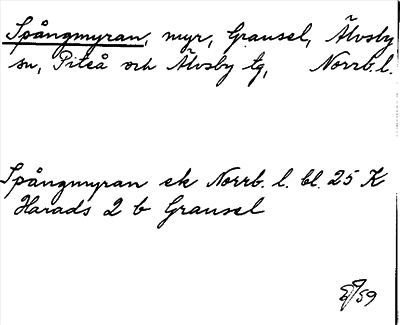 Spångmyran, myr, Gransel, Älvsby
sn, Piteå och Älvsby tg, Norrb. l.
Spångmyran ek Norrb. l. bl. 25 K
Harads 2 b Gransel
59